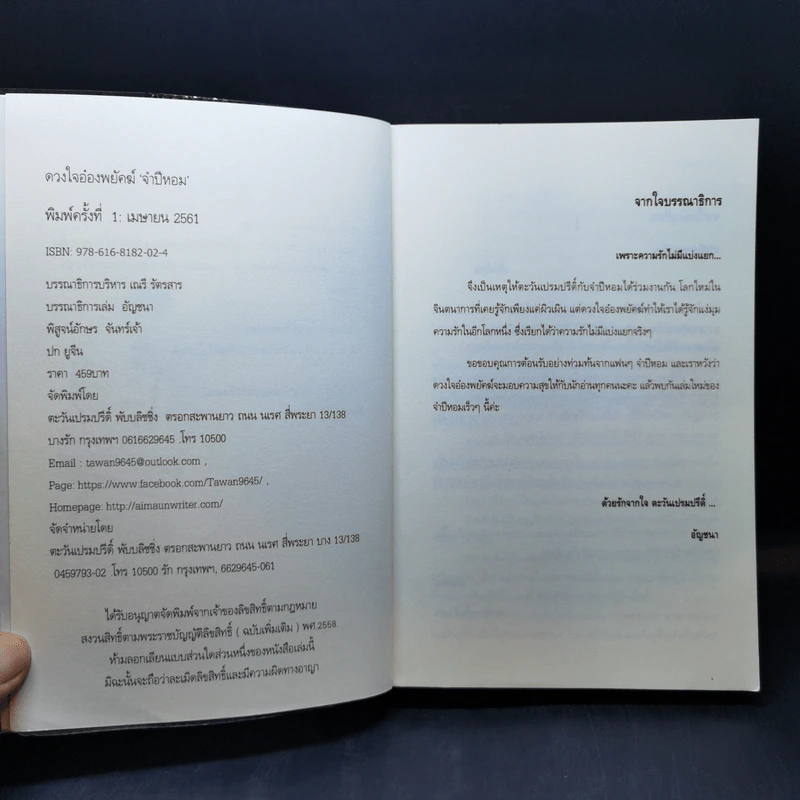 ดวงใจอ๋องพยัคฆ์ 'จำปีหอม'
พิมพ์ครั้งที่ 1: เมษายน 2561
ISBN: 978-616-8182-02-4
บรรณาธิการบริหาร เณรี รัตรสาร
บรรณาธิการเล่ม อัญชนา
พิสูจน์อักษร จันทร์เจ้า
ปก ยูจีน
ราคา 459บาท
จัดพิมพ์โดย
ตะวันเปรมปรีดิ์ พับบลิชชิ่ง ตรอกสะพานยาว ถนน นเรศ สี่พระยา 13/138
บางรัก กรุงเทพฯ 0616629645 .โทร 10500
Email : tawan9645@outlook.com ,
Page: https://www.facebook.com/Tawan9645/ ,
Homepage: http://aimaunwriter.com/
จัดจำหน่ายโดย
ตะวันเปรมปรีดิ์ พับบลิชชิ่ง ตรอกสะพานยาว ถนน นเรศ สี่พระยา บาง 13/138
0459793-02 .โทร 10500 รัก กรุงเทพฯ, 6629645-061
ได้รับอนุญาตจัดพิมพ์จากเจ้าของลิขสิทธิ์ตามกฎหมาย
สงวนสิทธิ์ตามพระราชบัญญัติลิขสิทธิ์ ( ฉบับเพิ่มเติม ) พศ.2558.
ห้ามลอกเลียนแบบส่วนใดส่วนหนึ่งของหนังสือเล่มนี้
มิฉะนั้นจะถือว่าละเมิดลิขสิทธิ์และมีความผิดทางอาญา
จากใจบรรณาธิการ
เพราะความรักไม่มีแบ่งแยก...
จึงเป็นเหตุให้ตะวันเปรมปรีดิ์กับจำปีหอมได้ร่วมงานกัน โลกใหม่ใน
จินตนาการที่เคยรู้จักเพียงแค่ผิวเผิน แต่ดวงใจอ๋องพยัคฆ์ทำให้เราได้รู้จักแง่มุม
ความรักในอีกโลกหนึ่ง ซึ่งเรียกได้ว่าความรักไม่มีแบ่งแยกจริงๆ
ขอขอบคุณการต้อนรับอย่างท่วมท้นจากแฟนๆ จำปีหอม และเราหวังว่า
ดวงใจอ๋องพยัคฆ์จะมอบความสุขให้กับนักอ่านทุกคนนะคะ แล้วพบกันเล่มใหม่ของ
จำปีหอมเร็วๆ นี้ค่ะ
ด้วยรักจากใจ ตะวันเปรมปรีดิ์ ...
อัญชนา